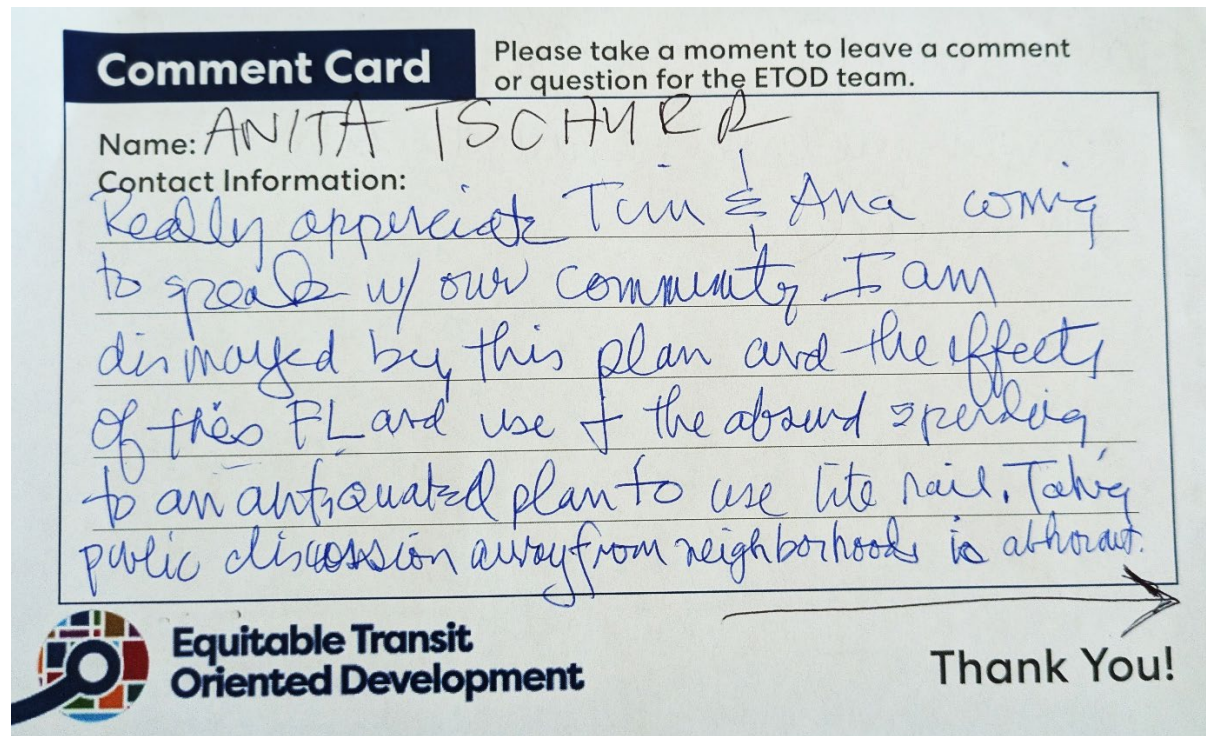 Comment Card
Please take a moment to leave a comment
or question for the ETOD team.
Name: ANITA TSCHURR
Contact Information:
Really appreciate Tim & Ana coming
to speak w/ our community. I am
dismayed by this plan and the effects
of this FLand use + the absurd spending
to an antiquated plan to use lite rail. Taking
public discussion away from neighborhoods is abhorant.
Equitable Transit
Oriented Development
Thank You!